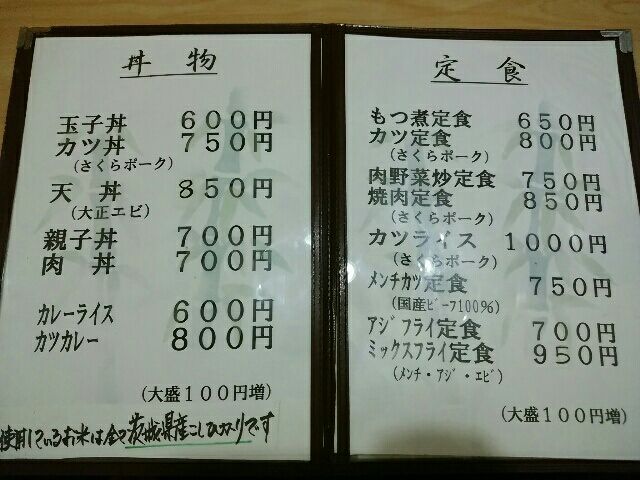 丼 物
玉子丼 600円
カツ丼 750円
(さくらポーク)
天 丼 850円
(大正エビ)
親子丼 700円
肉 丼 700円
カレーライス 600円
カツカレー 800円
(大盛100円増)
使用しているお米は全て茨城県産こしひかりです
定 食
もつ煮定食 650円
カツ定食 800円
(さくらポーク)
肉野菜炒定食 750円
焼肉定食 850円
(さくらポーク)
カツライス 1000円
(さくらポーク)
メンチカツ定食 750円
(国産ビーフ100%)
アジフライ定食 700円
ミックスフライ定食 950円
(メンチ・アジ・エビ)
(大盛100円増)